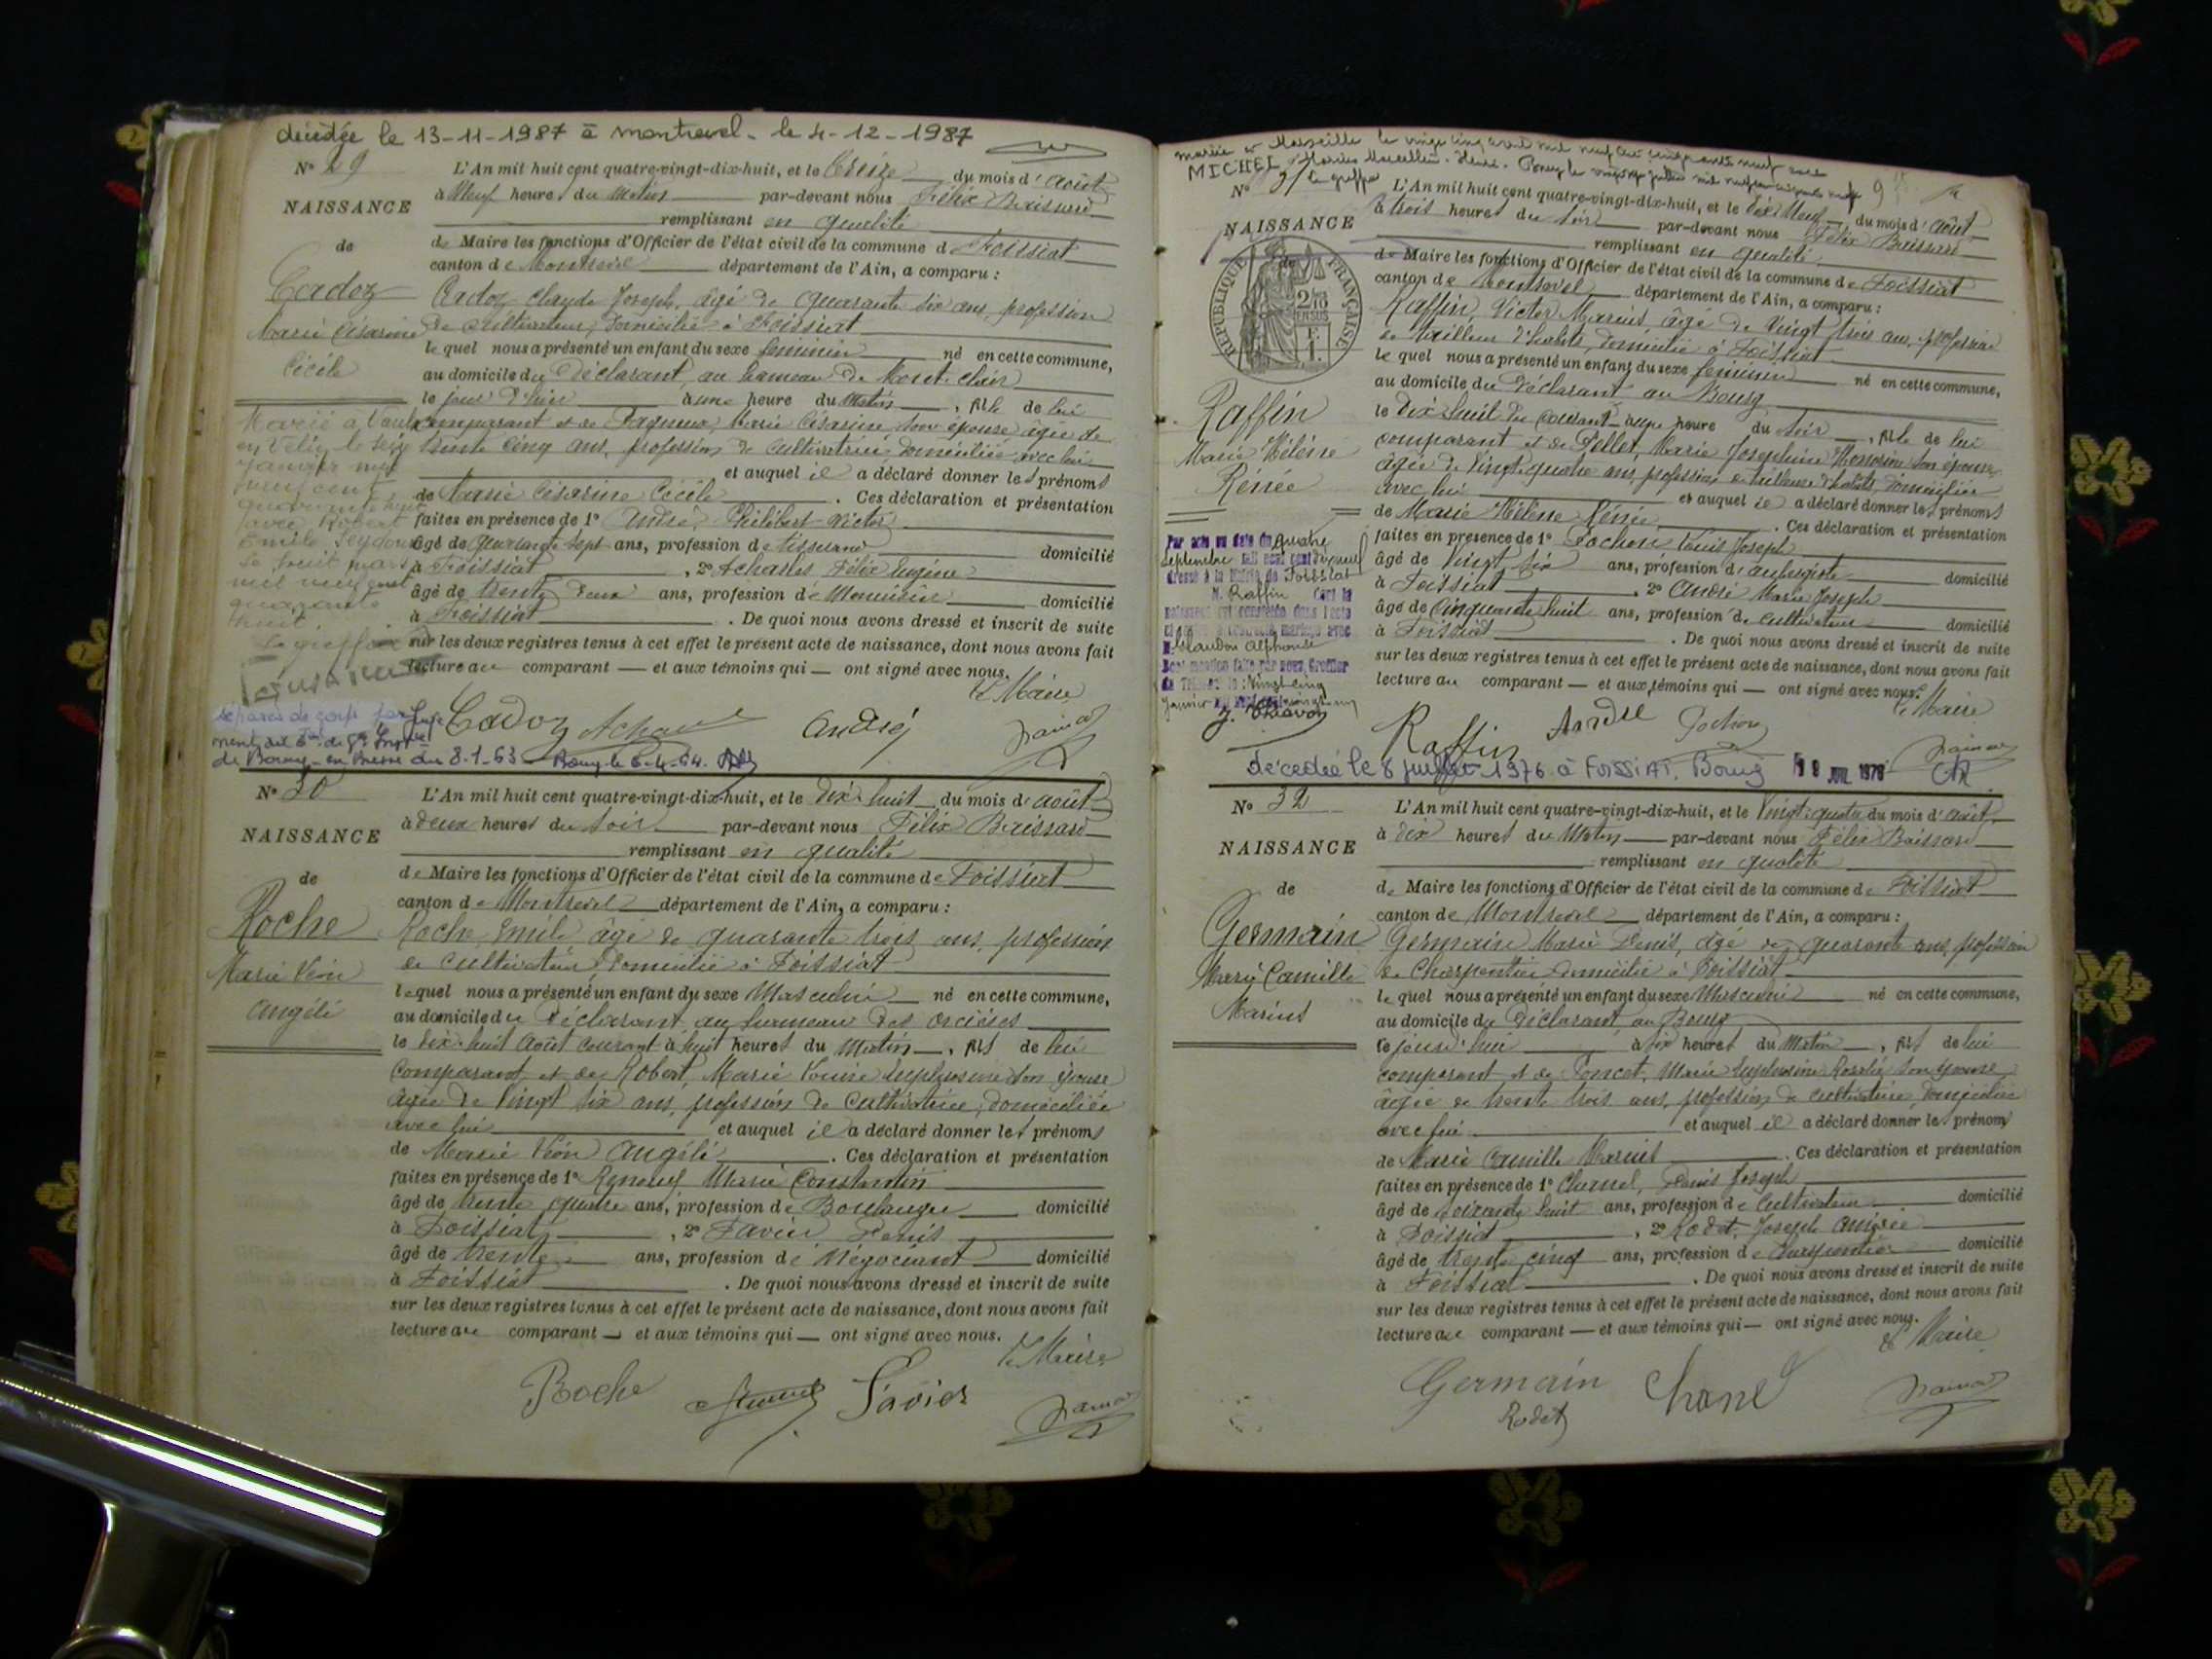 décédée le 13-11-1987 à montrevel - le 4-12-1987
N° 29
NAISSANCE
de
Cadoz
Marie Césarine
Cécile
L'An mil huit cent quatre-vingt-dix-huit, et le treize du mois d'août
à Neuf heures du Matin par-devant nous Félix Buissard
remplissant en qualité
de Maire les fonctions d'Officier de l'état civil de la commune d Foissiat
canton de Montrevel département de l'Ain, a comparu :
Cadoz Claude Joseph, âgé de quarante six ans, profession
de cultivateur, domicilié à Foissiat
lequel nous a présenté un enfant du sexe féminin né en cette commune,
au domicile du Déclarant, au hameau de
le jour d'hier à une heure du matin, fille de lui
comparant et de Marie Césarine, son épouse âgée de
trente cinq ans, profession de cultivatrice domiciliée avec lui
et auquel il a déclaré donner les prénoms
de Marie Césarine Cécile. Ces déclaration et présentation
faites en présence de 1° André, Philibert Victor
âgé de quarante sept ans, profession de tisserand domicilié
à Foissiat, 2° Achard Félix Eugène
âgé de trente deux ans, profession de Menuisier domicilié
à Foissiat. De quoi nous avons dressé et inscrit de suite
sur les deux registres tenus à cet effet le présent acte de naissance, dont nous avons fait
lecture au comparant et aux témoins qui ont signé avec nous.
Le Maire
Marié à Vaulx
en Velin le seize
janvier mil
neuf cent
quarante huit
avec Robert
Emile Seydoux
Le huit mars
mil neuf cent
quarante
huit
Le greffier
séparés de corps par juge
ment du de Gde Instce
de Bourg-en-Bresse du 8-1-63 Bourg le 6-4-64.
Cadoz Achard André
N° 30
NAISSANCE
de
Roche
Marie Léon
Angéli
L'An mil huit cent quatre-vingt-dix-huit, et le dix-huit du mois d'août
à deux heures du soir par-devant nous Félix Buissard
remplissant en qualité
de Maire les fonctions d'Officier de l'état civil de la commune de Foissiat
canton de Montrevel département de l'Ain, a comparu :
Roche Emile, âgé de quarante trois ans, profession
de cultivateur domicilié à Foissiat
lequel nous a présenté un enfant du sexe Masculin né en cette commune,
au domicile du Déclarant au hameau des
le dix-huit août courant à huit heures du matin, fils de lui
comparant et de Robert, Marie Louise Euphrosine son épouse
âgée de vingt six ans, profession de cultivatrice, domiciliée
avec lui et auquel il a déclaré donner les prénoms
de Marie Léon Angéli. Ces déclaration et présentation
faites en présence de 1° Renoud Marie Constantin
âgé de trente quatre ans, profession de Boulanger domicilié
à Foissiat, 2° Favier Denis
âgé de trente ans, profession de Négociant domicilié
à Foissiat. De quoi nous avons dressé et inscrit de suite
sur les deux registres tenus à cet effet le présent acte de naissance, dont nous avons fait
lecture au comparant et aux témoins qui ont signé avec nous.
Le Maire
Roche Favier
mariée à Marseille le vingt cinq avril mil neuf cent cinquante neuf avec
MICHEL Marius Marcellin Henri. Bourg le
le greffier
N° 31
NAISSANCE
de
RÉPUBLIQUE FRANÇAISE
Raffin
Marie Hélène
Rénée
L'An mil huit cent quatre-vingt-dix-huit, et le dix Neuf du mois d'août
à trois heures du soir par-devant nous Félix Buissard
remplissant en qualité
de Maire les fonctions d'Officier de l'état civil de la commune de Foissiat
canton de Montrevel département de l'Ain, a comparu :
Raffin, Victor Marius, âgé de vingt trois ans, profession
de tailleur d'habits, domicilié à Foissiat
lequel nous a présenté un enfant du sexe féminin né en cette commune,
au domicile du Déclarant au Bourg
le dix-huit du courant à heure du soir, fille de lui
comparant et de Pellet, Marie Joséphine son épouse
âgée de vingt quatre ans, profession de tailleuse d'habits, domiciliée
avec lui et auquel il a déclaré donner les prénoms
de Marie Hélène Rénée. Ces déclaration et présentation
faites en présence de 1° Pochon Louis Joseph
âgé de vingt six ans, profession d'aubergiste domicilié
à Foissiat, 2° André Marie Joseph
âgé de cinquante huit ans, profession de cultivateur domicilié
à Foissiat. De quoi nous avons dressé et inscrit de suite
sur les deux registres tenus à cet effet le présent acte de naissance, dont nous avons fait
lecture au comparant et aux témoins qui ont signé avec nous.
Le Maire
Par acte en date du quatre
septembre mil neuf cent
dressé à la Mairie de Foissiat
M. Raffin dont la
naissance est constatée dans l'acte
ci-contre a contracté mariage avec
M. Alphonse
Dont mention faite par nous, Greffier
du Tribunal le vingt-cinq
janvier mil neuf cent vingt un
Raffin André Pochon
décédée le 8 juillet 1976 à FOISSIAT. Bourg 19 JUIL 1976
N° 32
NAISSANCE
de
Germain
Marie Camille
Marius
L'An mil huit cent quatre-vingt-dix-huit, et le vingt-quatre du mois d'août
à dix heures du Matin par-devant nous Félix Buissard
remplissant en qualité
de Maire les fonctions d'Officier de l'état civil de la commune de Foissiat
canton de Montrevel département de l'Ain, a comparu :
Germain Marie Denis, âgé de quarante ans, profession
de Charpentier domicilié à Foissiat
lequel nous a présenté un enfant du sexe Masculin né en cette commune,
au domicile du Déclarant, au Bourg
le jour d'hui à six heures du matin, fils de lui
comparant et de Poncet, Marie Euphrosine Rosalie son épouse
âgée de trente trois ans, profession de cultivatrice, domiciliée
avec lui et auquel il a déclaré donner les prénoms
de Marie Camille Marius. Ces déclaration et présentation
faites en présence de 1° Charnel, Denis Joseph
âgé de soixante huit ans, profession de cultivateur domicilié
à Foissiat, 2° Rodet, Joseph
âgé de trente cinq ans, profession de charpentier domicilié
à Foissiat. De quoi nous avons dressé et inscrit de suite
sur les deux registres tenus à cet effet le présent acte de naissance, dont nous avons fait
lecture au comparant et aux témoins qui ont signé avec nous.
Le Maire
Germain Charnel
Rodet